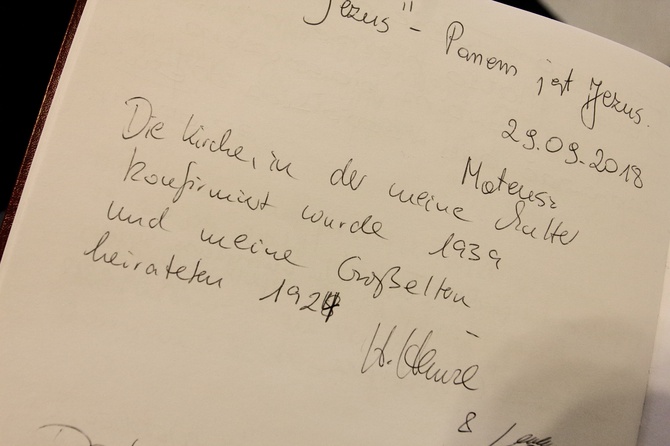 Jezus" – Panem jest Jezus.
29.09.2018
Mateusz
Die Kirche, in der meine Mutter
konfirmiert wurde 1939
und meine Großeltern
heirateten 1924